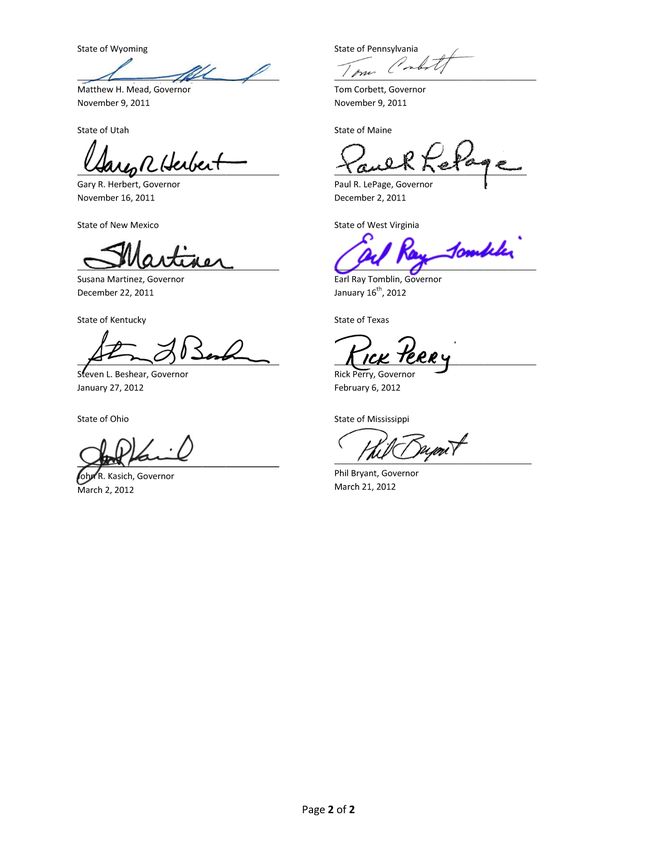 State of Wyoming
Matthew H. Mead, Governor
November 9, 2011
State of Pennsylvania
Tom Corbett
Tom Corbett, Governor
November 9, 2011
State of Utah
Gary R Herbert
Gary R. Herbert, Governor
November 16, 2011
State of Maine
Paul R LePage
Paul R. LePage, Governor
December 2, 2011
State of New Mexico
SMartinez
Susana Martinez, Governor
December 22, 2011
State of West Virginia
Earl Ray Tomblin
Earl Ray Tomblin, Governor
January 16th, 2012
State of Kentucky
Steven L. Beshear, Governor
January 27, 2012
State of Texas
Rick Perry
Rick Perry, Governor
February 6, 2012
State of Ohio
John R. Kasich, Governor
March 2, 2012
State of Mississippi
Phil Bryant
Phil Bryant, Governor
March 21, 2012
Page 2 of 2